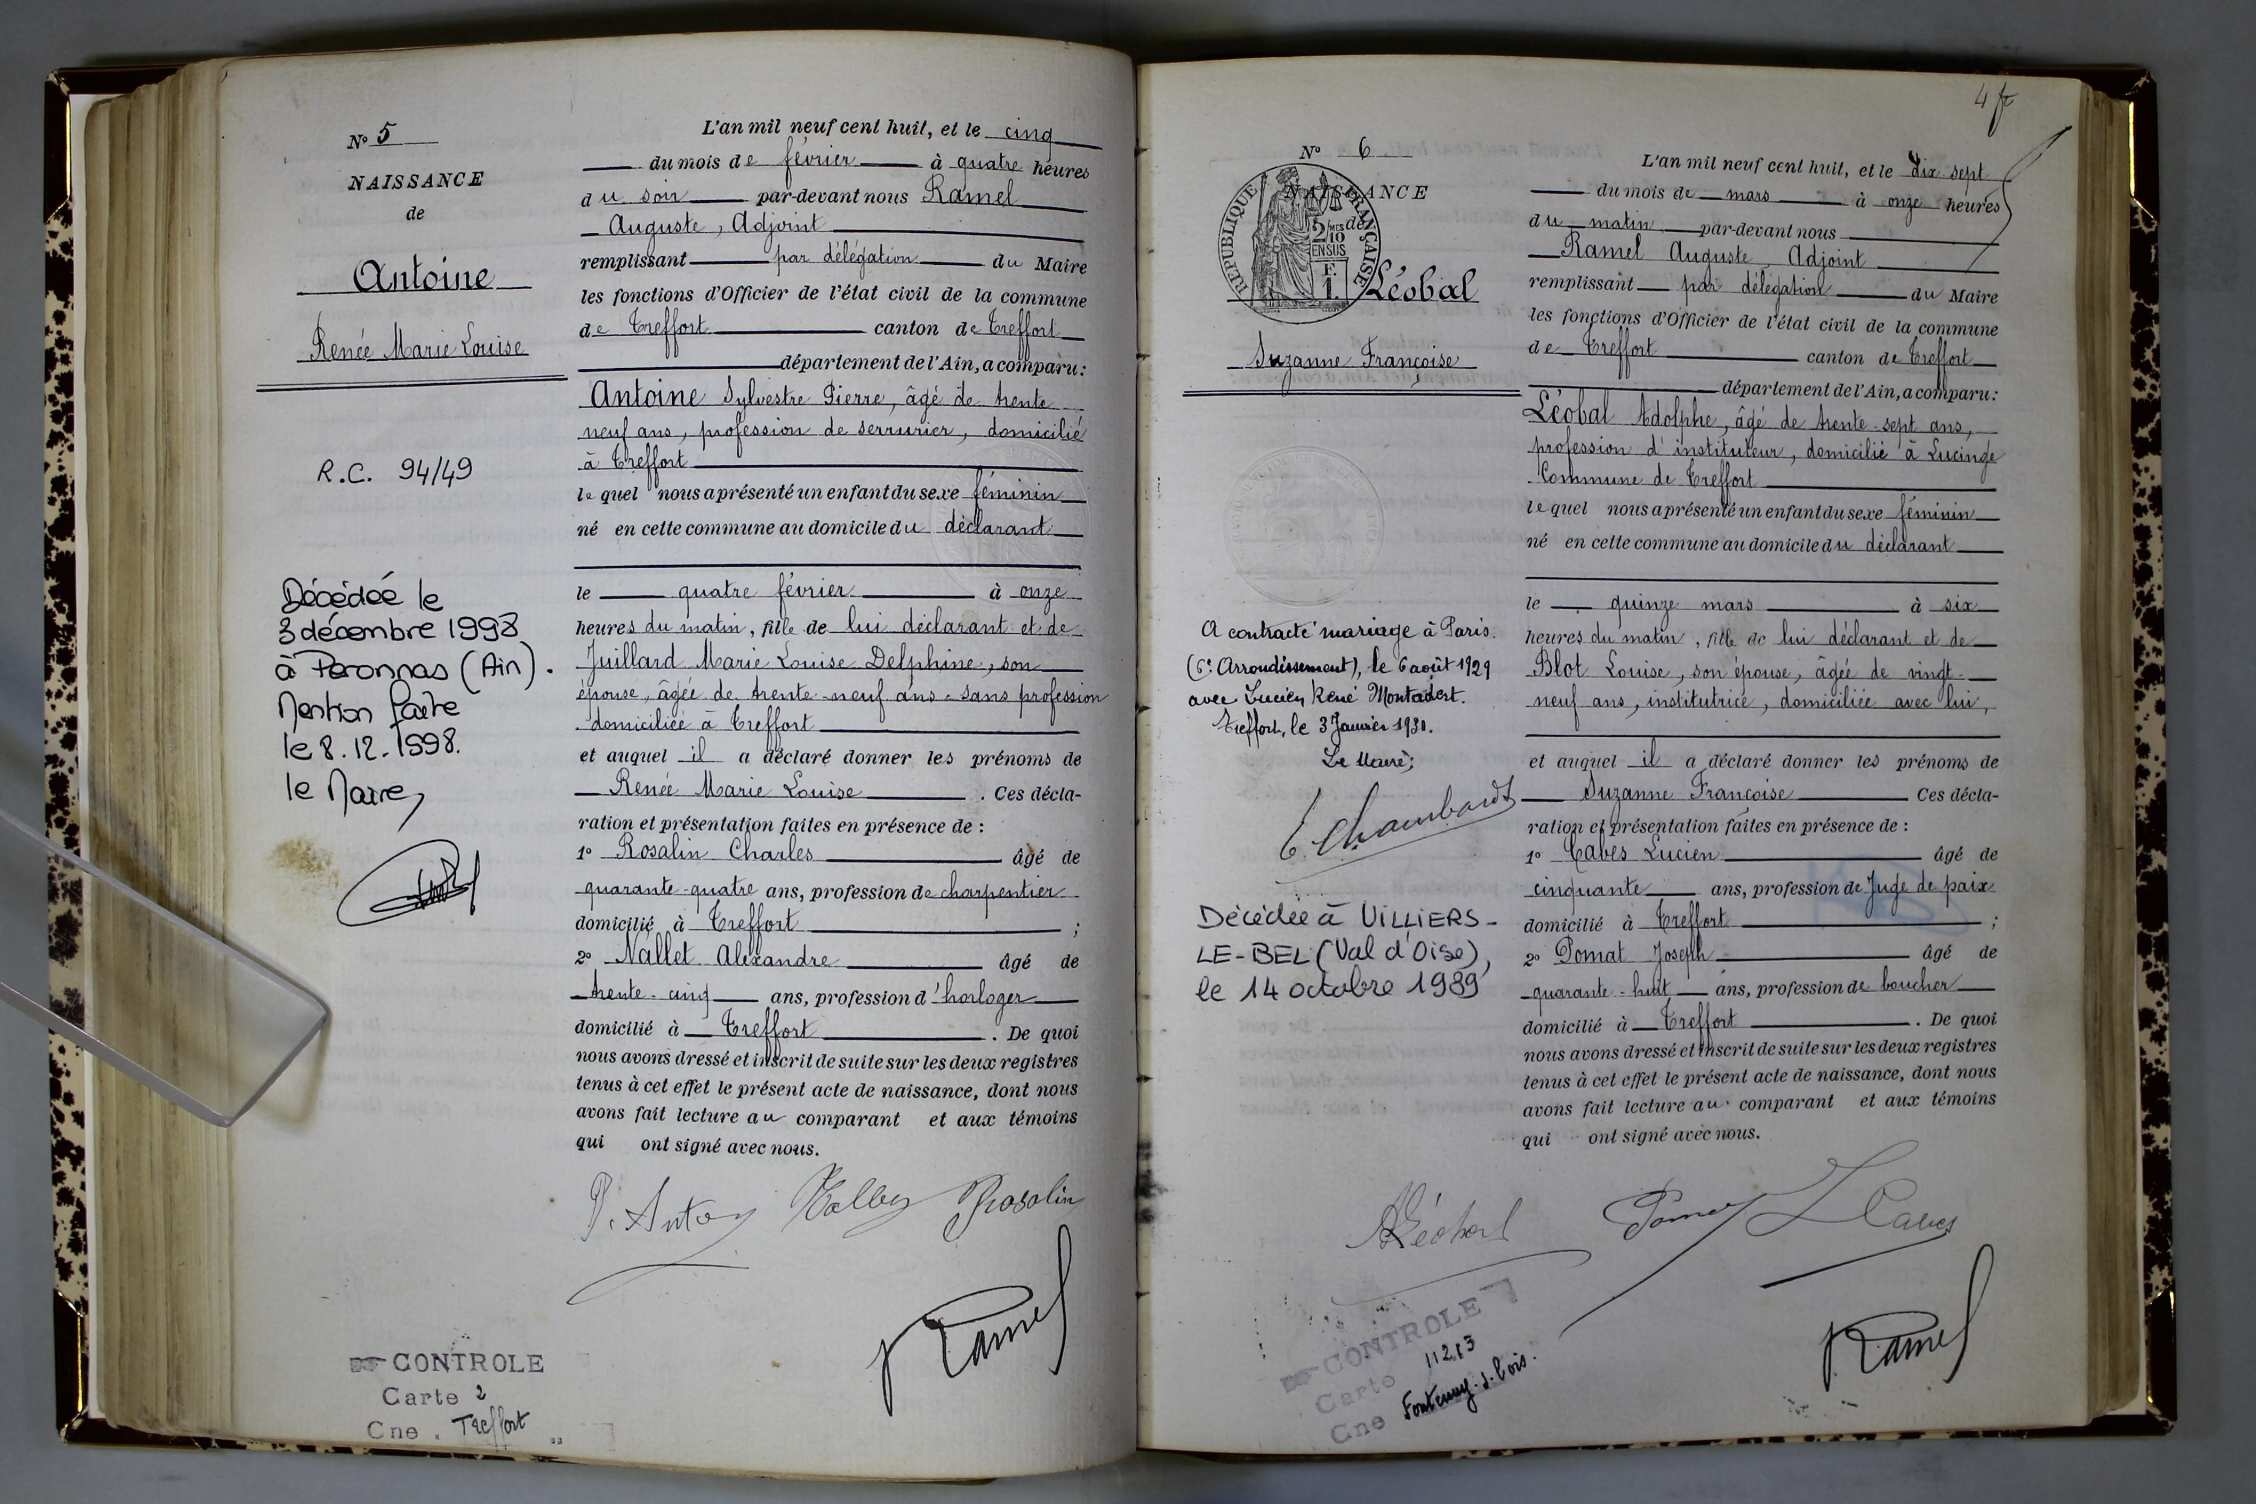 N° 5
NAISSANCE
de
Antoine
Renée Marie Louise
R.C. 94/49
Décédée le
3 décembre 1998
à Péronnas (Ain).
Mention faite
le 8.12.1998.
le Maire,
CONTROLE
Carte 2
Cne. Treffort
L'an mil neuf cent huit, et le cinq
du mois de février à quatre heures
du soir par-devant nous Ramel
Auguste, Adjoint
remplissant par délégation du Maire
les fonctions d'Officier de l'état civil de la commune
de Treffort canton de Treffort
département de l'Ain, a comparu:
Antoine Sylvestre Pierre, âgé de trente
neuf ans, profession de serrurier, domicilié
à Treffort
lequel nous a présenté un enfant du sexe féminin
né en cette commune au domicile du déclarant
le quatre février à onze
heures du matin, fille de lui déclarant et de
Juillard Marie Louise Delphine, son
épouse, âgée de trente-neuf ans - sans profession
domiciliée à Treffort
et auquel il a déclaré donner les prénoms de
Renée Marie Louise. Ces décla-
ration et présentation faites en présence de :
1° Rosalin Charles âgé de
quarante-quatre ans, profession de charpentier
domicilié à Treffort ;
2° Nallet Alexandre âgé de
trente-cinq ans, profession d'horloger
domicilié à Treffort. De quoi
nous avons dressé et inscrit de suite sur les deux registres
tenus à cet effet le présent acte de naissance, dont nous
avons fait lecture au comparant et aux témoins
qui ont signé avec nous.
Rosalin
Ramel
4 f
N° 6
NAISSANCE
de
RÉPUBLIQUE FRANÇAISE
2 MES
10
EN SUS
F.
1.
Léobal
Suzanne Françoise
A contracté mariage à Paris.
(6e Arrondissement), le 6 août 1929
avec Lucien René Montadert.
Treffort, le 3 Janvier 1930.
Le Maire;
E. Chambard
Décédée à VILLIERS-
LE-BEL (Val d'Oise),
le 14 octobre 1989
CONTROLE
Carte 11213
Cne Fontenay-s-bois.
L'an mil neuf cent huit, et le dix-sept
du mois de mars à onze heures
du matin par-devant nous
Ramel Auguste, Adjoint
remplissant par délégation du Maire
les fonctions d'Officier de l'état civil de la commune
de Treffort canton de Treffort
département de l'Ain, a comparu:
Léobal Adolphe, âgé de trente-sept ans,
profession d'instituteur, domicilié à Lucinge
Commune de Treffort
lequel nous a présenté un enfant du sexe féminin
né en cette commune au domicile du déclarant
le quinze mars à six
heures du matin, fille de lui déclarant et de
Blot Louise, son épouse, âgée de vingt-
neuf ans, institutrice, domiciliée avec lui,
et auquel il a déclaré donner les prénoms de
Suzanne Françoise Ces décla-
ration et présentation faites en présence de :
1° Caves Lucien âgé de
cinquante ans, profession de Juge de paix
domicilié à Treffort ;
2° Pomat Joseph âgé de
quarante-huit ans, profession de boucher
domicilié à Treffort. De quoi
nous avons dressé et inscrit de suite sur les deux registres
tenus à cet effet le présent acte de naissance, dont nous
avons fait lecture au comparant et aux témoins
qui ont signé avec nous.
ALéobal
L Caves
Ramel